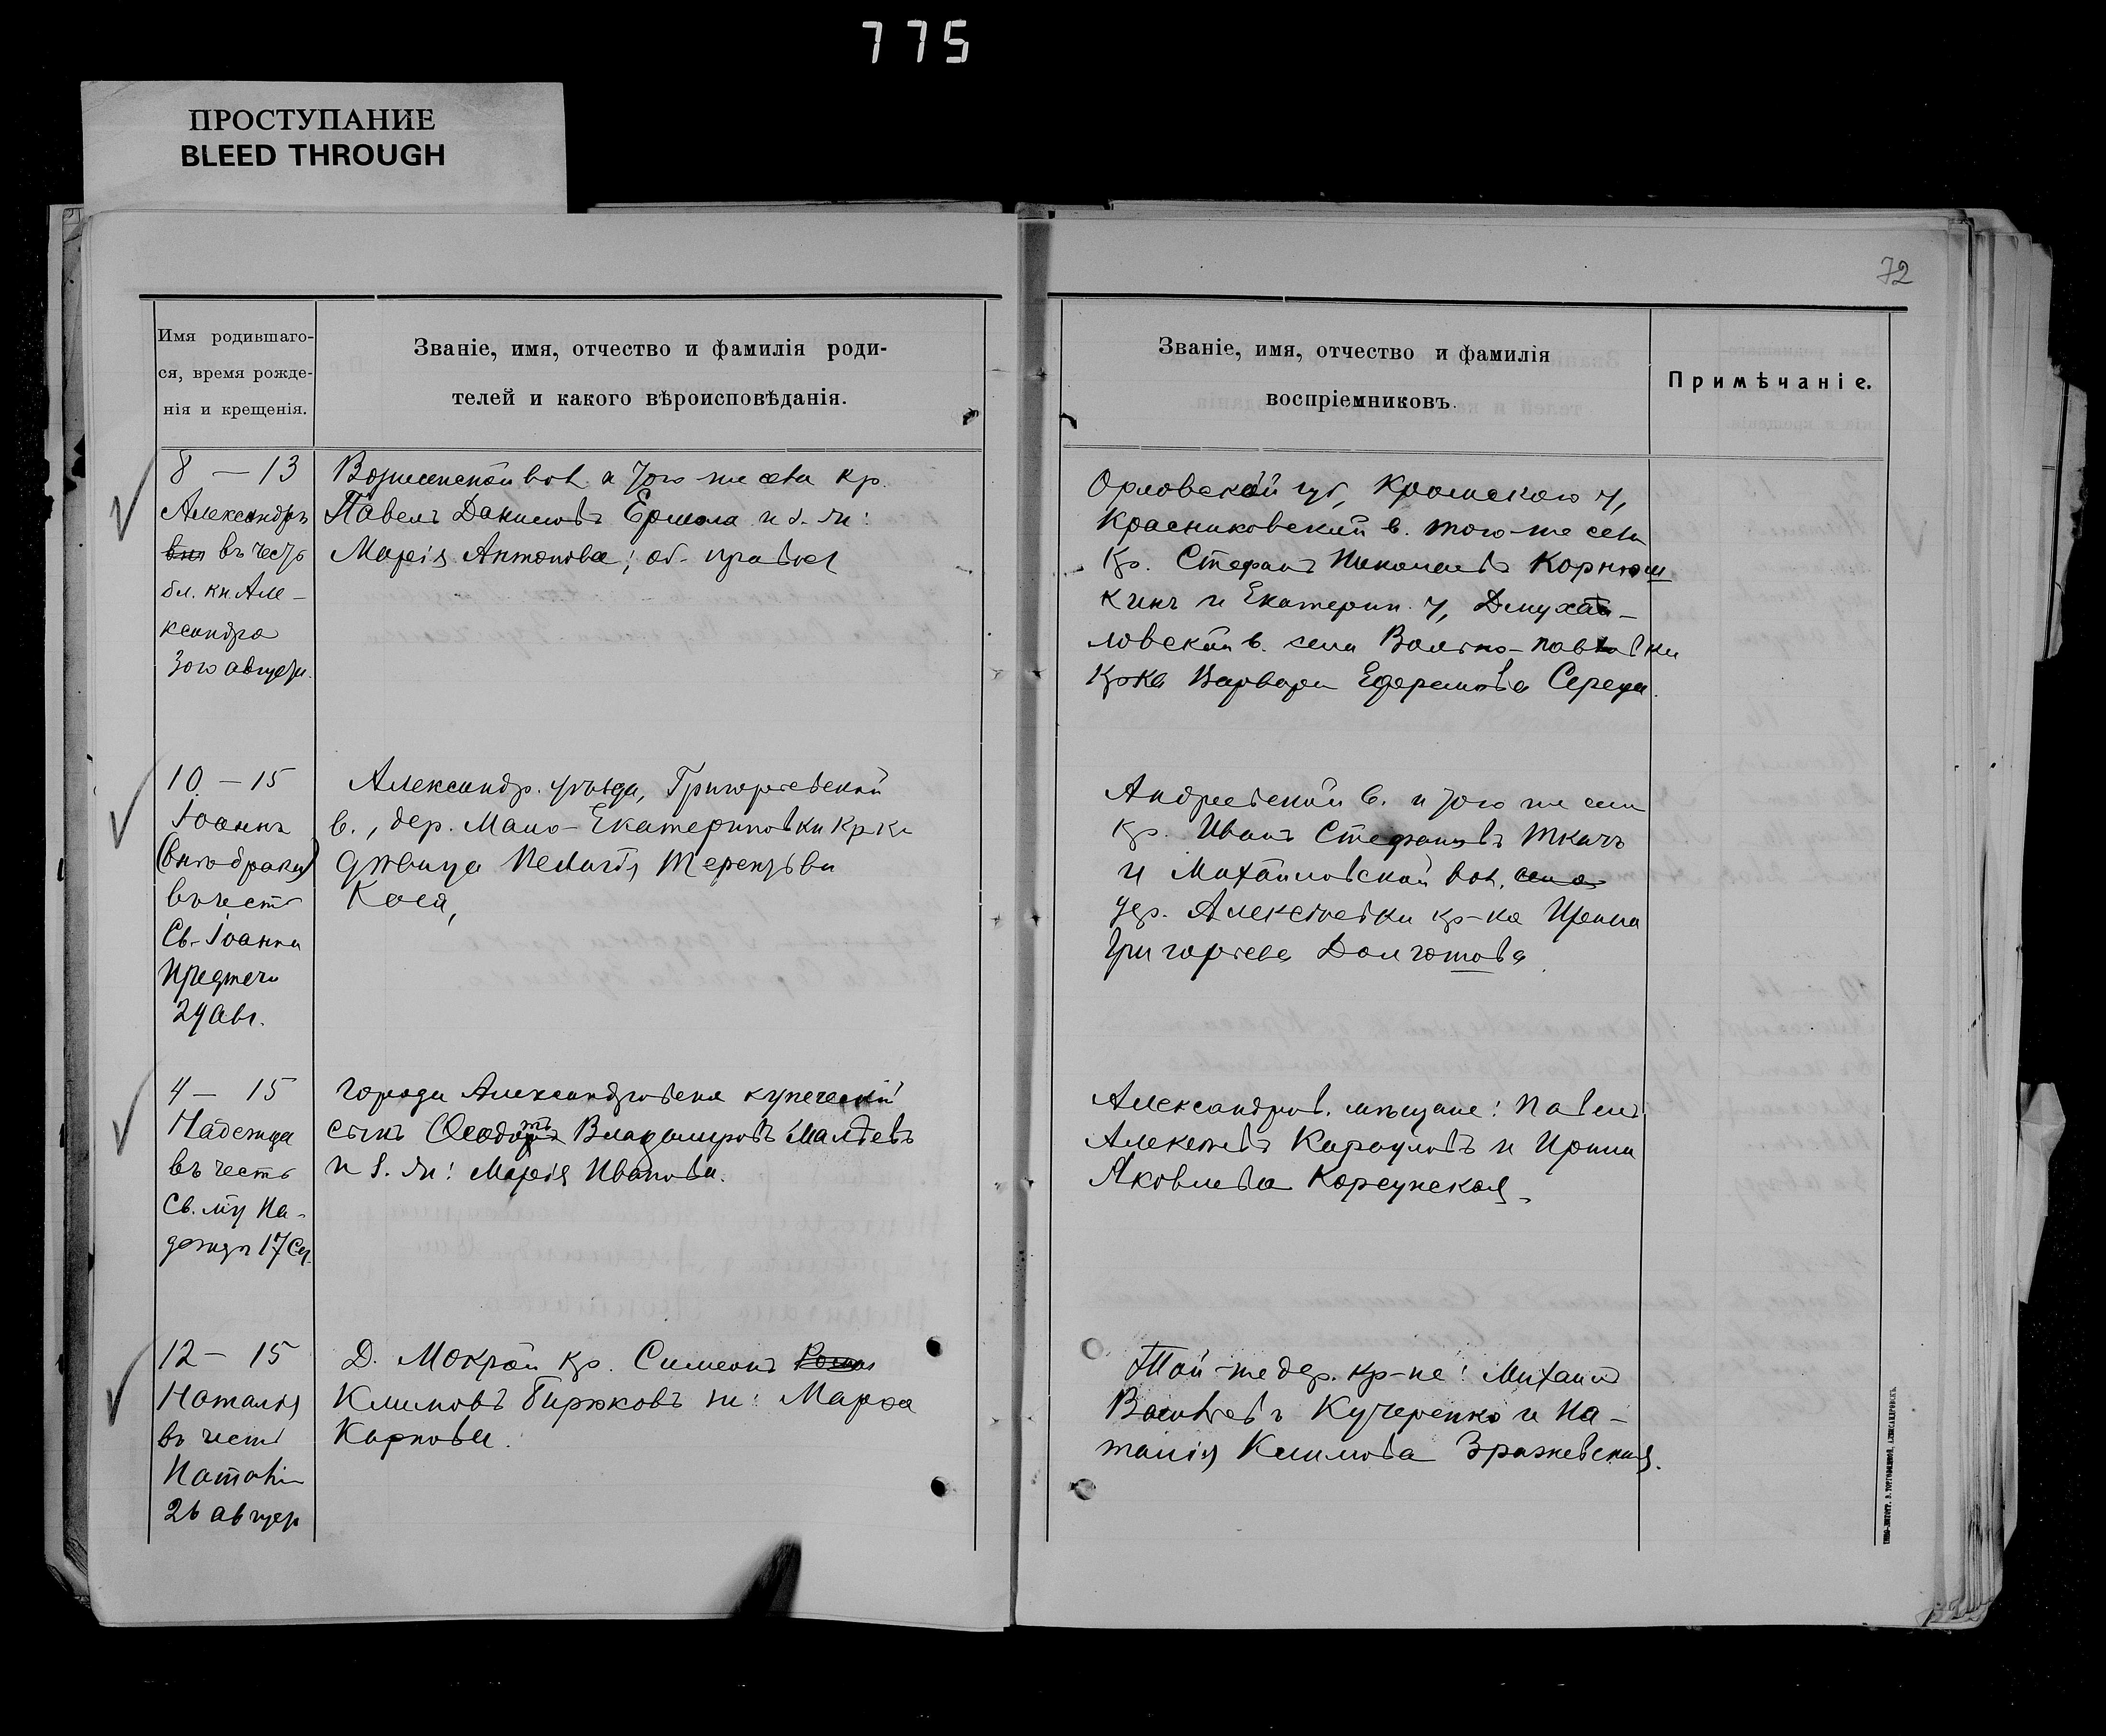 775
ПРОСТУПАНИЕ
BLEED THROUGH
72
Имя родившаго-
ся, время рожде-
нія и крещенія.
Званіе, имя, отчество и фамилія роди-
телей и какого вѣроисповѣданія.
8 — 13
Александръ
въ честь
бл. кн. Але-
ксандра
30го август.
Вознесенской вол. и того же села кр.
Павелъ Даниловъ Ермола и з. ж:
Марія Антонова; об. правосл
10 — 15
Іоаннъ
(внѣбрачн)
въ честь
Св. Іоанна
Предтечи
29 Авг.
Александр. уѣзда, Григорьевской
в., дер. Мало-Екатериновки кр-ка
дѣвица Терентьева
4 — 15
Надежда
въ честь
Св. му На-
дежды 17 Сен.
города Александровска купеческій
сынъ Владиміровъ
и з. ж: Марія Иванова.
12 — 15
Наталія
въ честь
Наталіи
26 август
Д. Мокрой кр. Симеонъ
Климовъ Бирюковъ ж: Марѳа
Карпова.
Званіе, имя, отчество и фамилія
воспріемниковъ.
Примѣчаніе.
Орловской губ, Кромскаго у,
Красниковской в. того-же села
Кр. Стефанъ Николаевъ Корнюш
кинъ и Екатерин. у,
ловской в. села
кр-ка Варвара Ефремова Середа.
Андреевской в. и того же села
кр. Иванъ Стефановъ Ткачъ
и Михайловской вол.
дер. Алексѣевки кр-ка Ирина
Григорьева Долготова
Александров. мѣщане: Павелъ
Алексѣевъ Карауловъ и Ирина
Яковлева Корсунская.
Той-же дер. кр-не: Михаилъ
Васильевъ Кучеренко и На-
талія Климова Зражевская.
ТИПО-ЛИТОГР. АЛЕКСАНДРОВСКЪ.